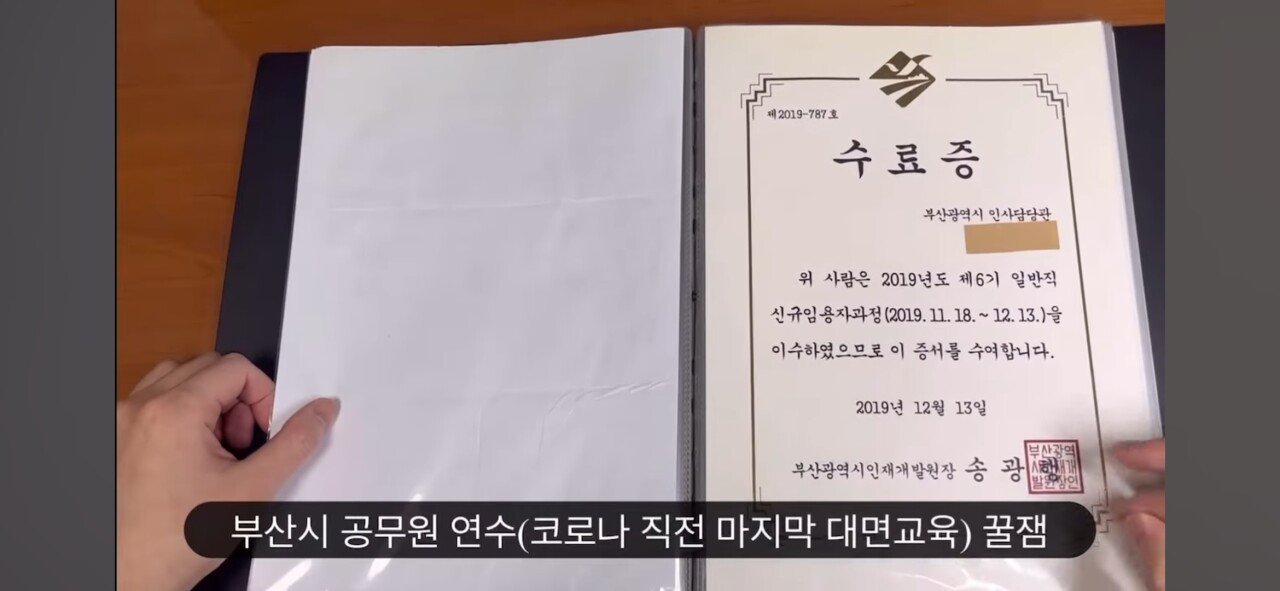 제2019-787호
수료증
부산광역시 인사담당관
위 사람은 2019년도 제6기 일반직
신규임용자과정(2019. 11. 18. ~ 12. 13.)을
이수하였으므로 이 증서를 수여합니다.
2019년 12월 13일
부산광역시인재개발원장 송광행
부산광역
시인재개
발원장인
부산시 공무원 연수(코로나 직전 마지막 대면교육) 꿀잼